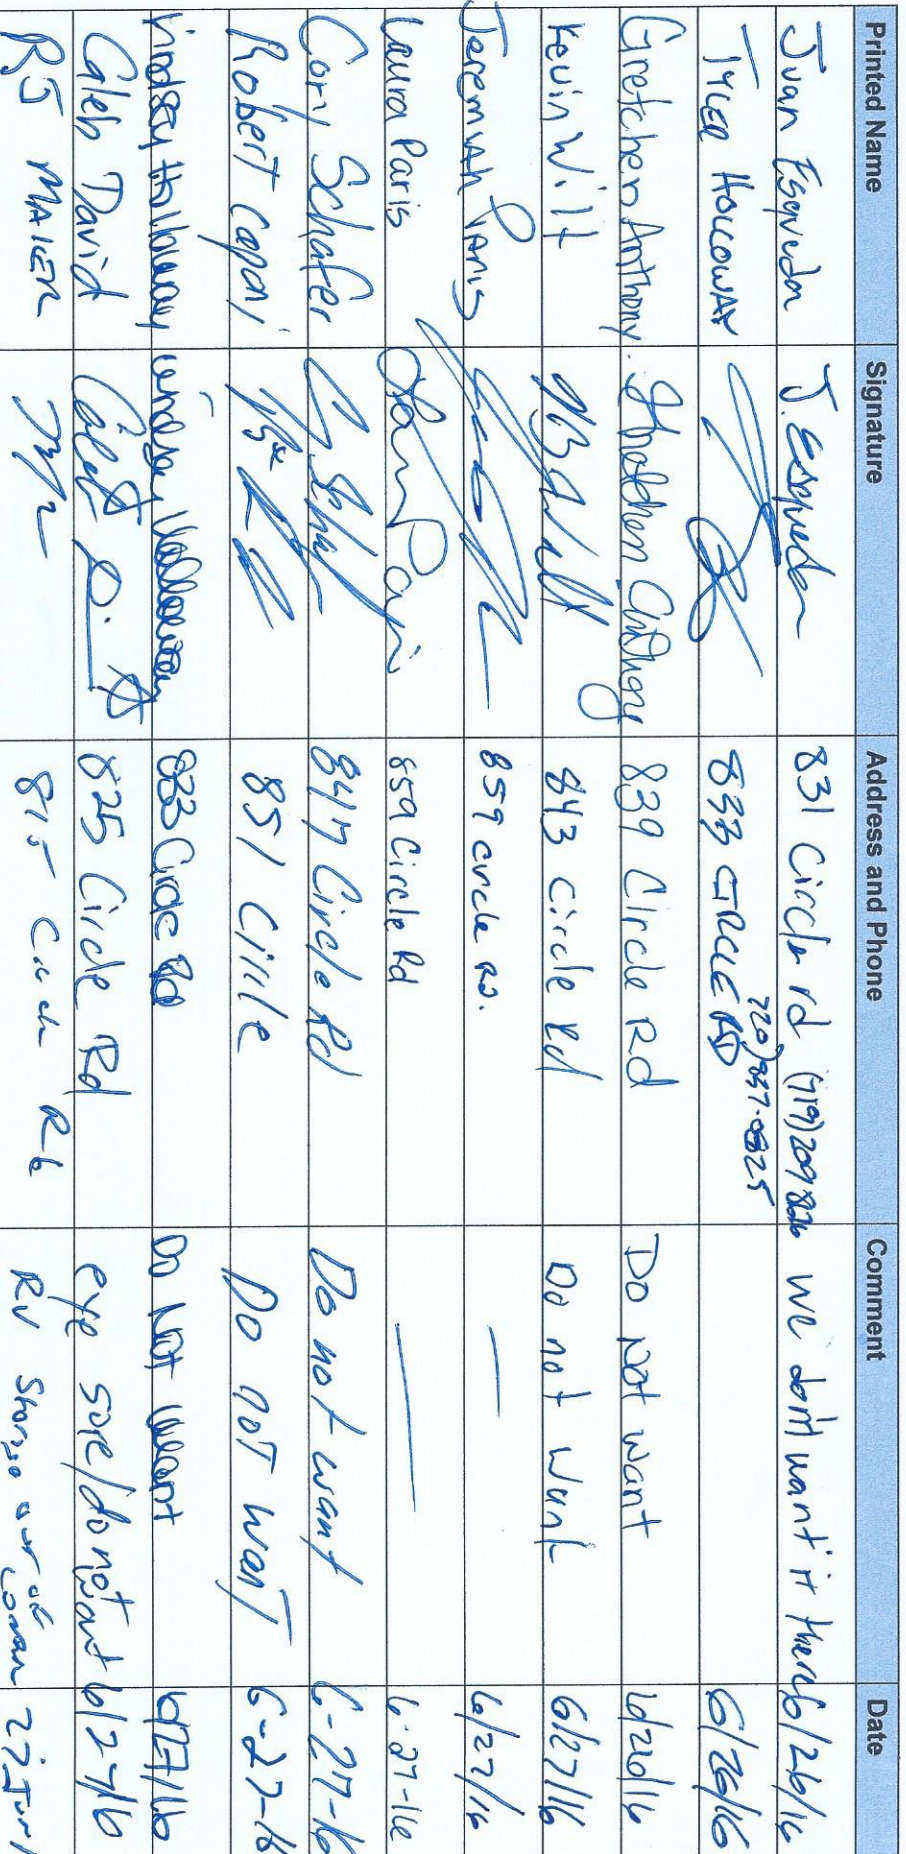 Printed Name Signature Address and Phone Comment Date
Juan Esqueda J. Esqueda 831 Circle rd (719)209 we don't want it there 6/26/16
TYLER HOLLOWAY 833 CIRCLE RD 6/26/16
Gretchen Anthony Gretchen Anthony 839 Circle Rd Do Not want 6/26/16
Kevin Wilt 843 Circle Rd Do not want 6/27/16
Jeremiah Paris 859 circle RD. — 6/27/16
Laura Paris Laura Paris 859 Circle Rd — 6-27-16
Cory Schafer 847 Circle Rd Do not want 6-27-16
Robert 851 Circle Do not want 6-27-16
Lindsey Holloway Lindsey Holloway 833 Circle Rd Do Not Want 6/27/16
Caleb David 825 Circle Rd eye sore/do not want 6/27/16
RJ MAIER 815 RV Storage 27 Jun